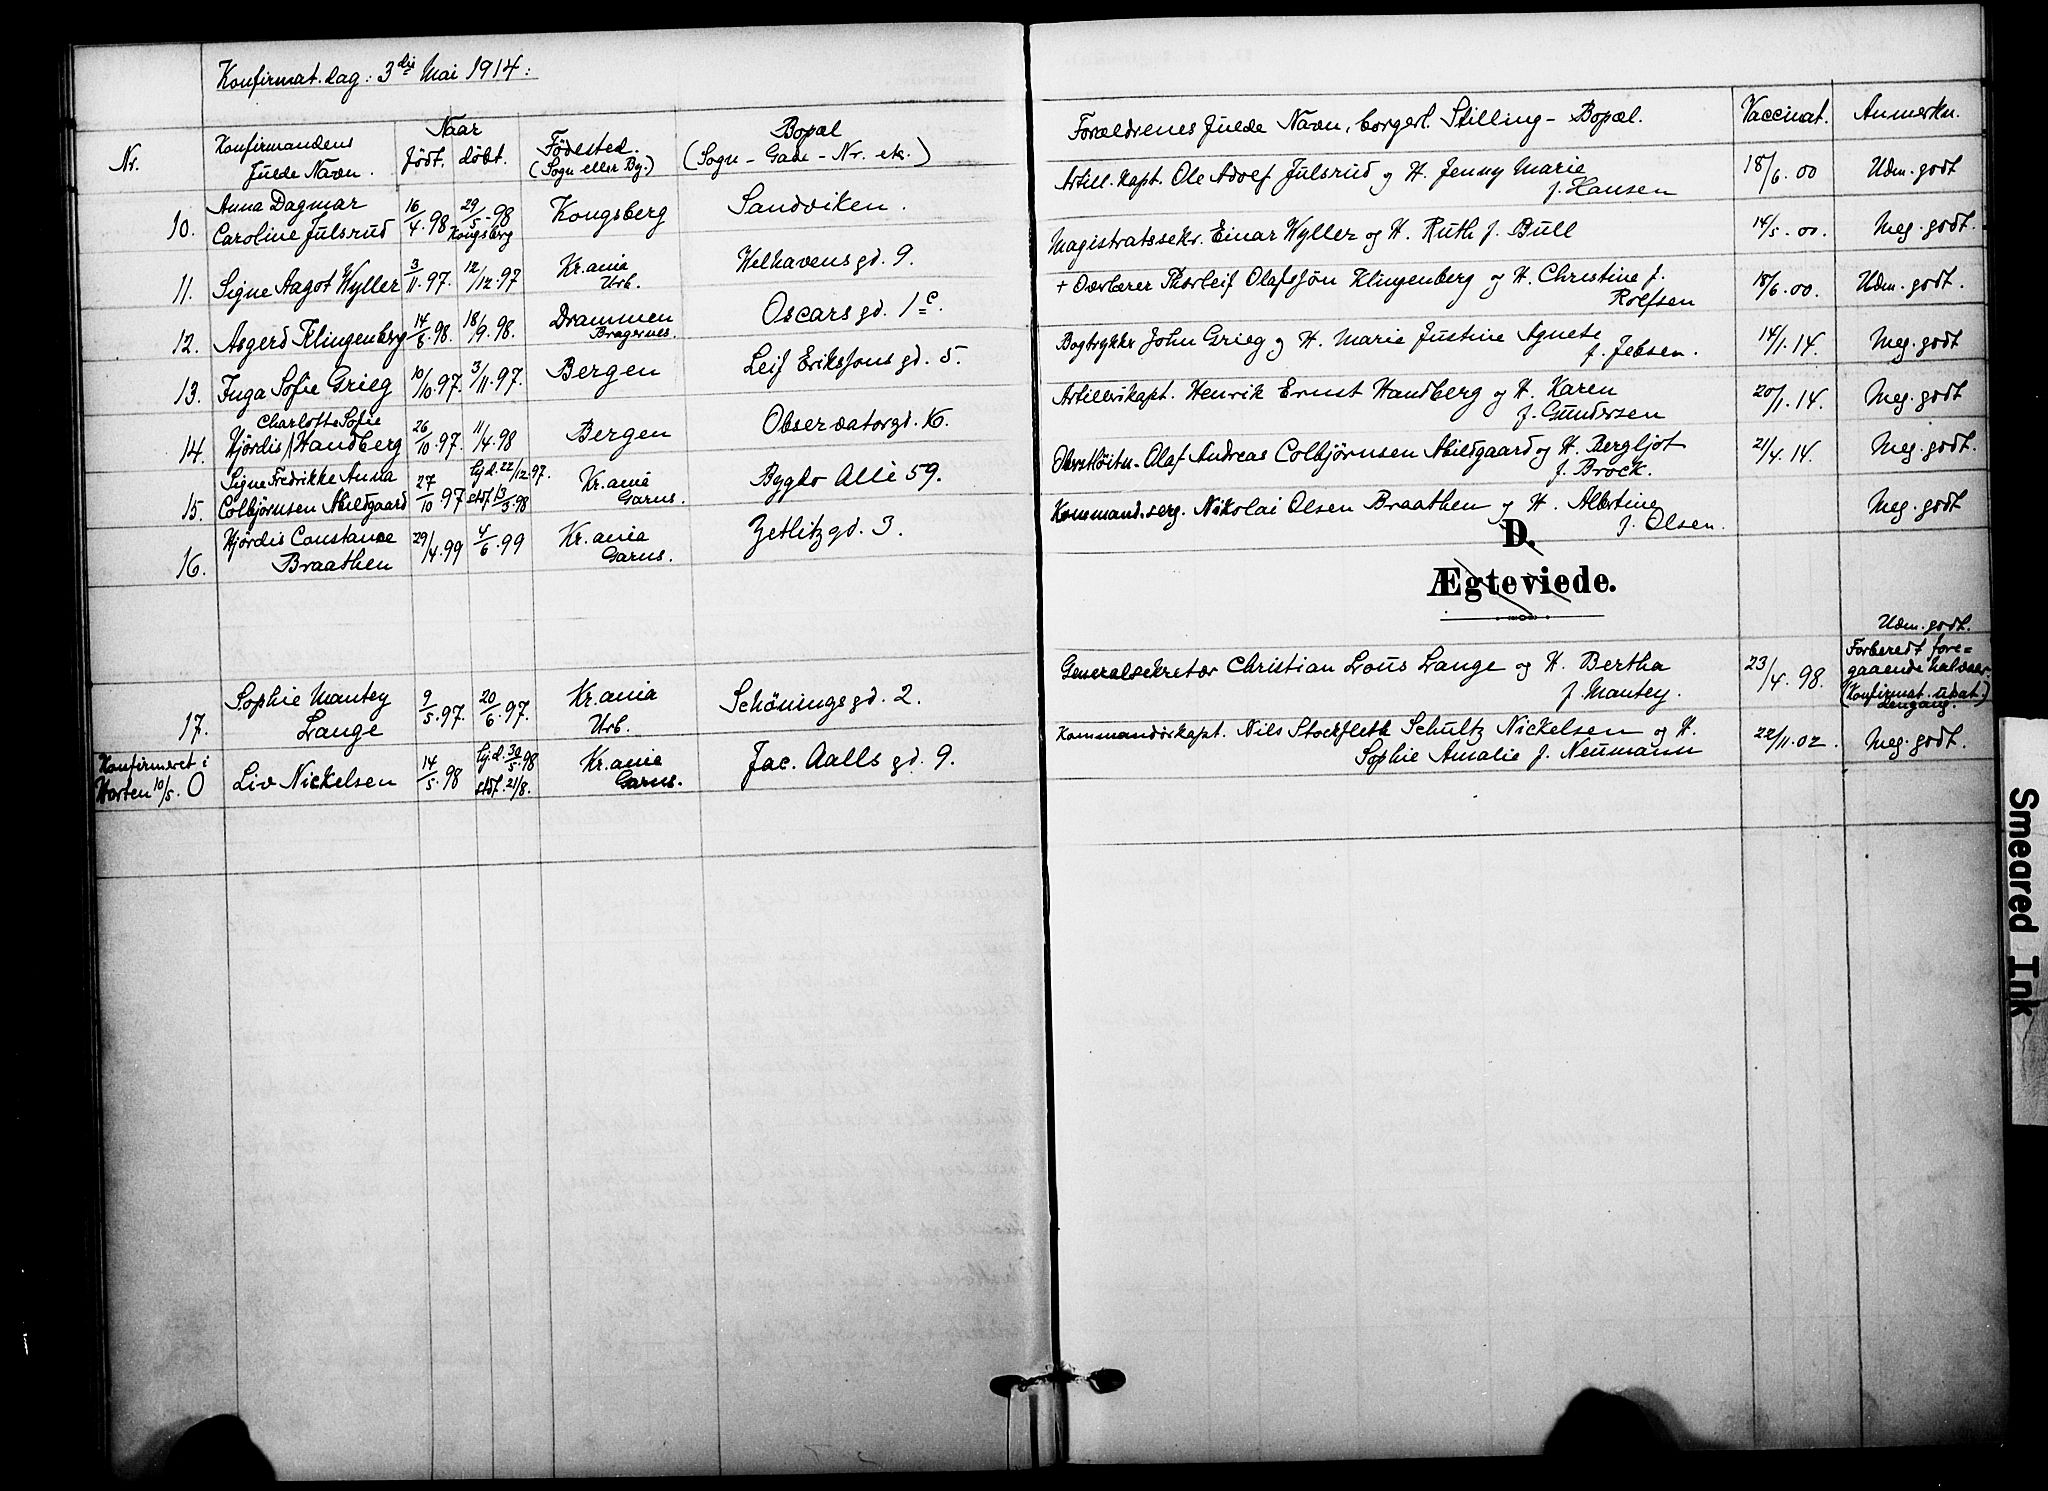 Konfirmat. dag: 3die Mai 1914:
Nr.
Konfirmandens
fulde Navn.
Naar
født. døbt.
Fødested.
(Sogn eller By.)
Bopæl
(Sogn - Gade - Nr. etc.)
10.
Anna Dagmar
Caroline Julsrud
16/4.98
29/5.98
Kongsberg
Kongsberg
Sandviken.
11. Signe Aagot Wyller 3/11.97. 12/12.97 Kr.ania
Urb.
Welhavens gd. 9.
12. Asgerd Klingenberg 14/6.98. 18/9.98. Drammen
Bragernes.
Oscars gd. 1c.
13. Inga Sofie Grieg 10/10.97. 3/11.97. Bergen Leif Erikssons gd. 5.
Charlotte Sofie
14. Hjørdis / Handberg 26/10.97. 11/4.98 Bergen Observatorgd. 16.
Signe Fredrikke Anna
15. Colbjørnsen Mildgaard 27/10.97 hj.d. 22/12.97.
stdf. 13/3.98
Kr.ania
Garns.
Bygdø Allé 59.
16. Hjørdis Constance
Braathen
29/4.99 4/6.99 Kr.ania
Garns.
Zetlitz gd. 3.
17. Sophie Mantey
Lange
9/5.97. 20/6.97. Kr.ania
Urb.
Schönings gd. 2.
Konfirmeret i
Horten 10/5. O
Liv Nickelsen 14/5.98 hj.d. 30/5.98
stdf. 21/8.
Kr.ania
Garns.
Jac. Aalls gd. 9.
Forældrenes fulde Navn, borgerl. Stilling - Bopæl. Vaccinat. Anmerkn.
Artill. kapt. Ole Adolf Julsrud og H. Jenny Marie
f. Hansen
18/6.00 Udm. godt
Magistratssekr. Einar Wyller og H. Ruth f. Bull 14/5.00. Meg. godt.
+ Overlærer Thorleif Olafssøn Klingenberg og H. Christine f.
Rolfsen
18/6.00. Udm. godt.
Bogtrykker John Grieg og H. Marie Justine Agnete
f. Jebsen.
14/1.14. Meg. godt
Artillerikapt. Henrik Ernst Handberg og H. Karen
f. Gundersen
20/1.14. Meg. godt
Oberstløitn. Olaf Andreas Colbjørnsen Mildgaard og H. Bergljot
f. Brock.
21/4.14. Meg. godt.
Kommand. serg. Nikolai Olsen Braathen og H. Albertine
f. Olsen.
Meg. godt
D.
Ægteviede.
Generalsekretær Christian Lous Lange og H. Bertha
f. Mantey.
23/4.98.
Udm. godt.
Forberedt fore=
gaaende halvaar.
(Konfirmat. udsat.)
dengang.
Kommandørkapt. Nils Stockfleth Schultz Nickelsen og H.
Sophie Amalie f. Neumann
22/11.02. Meg. godt.
Smeared Ink